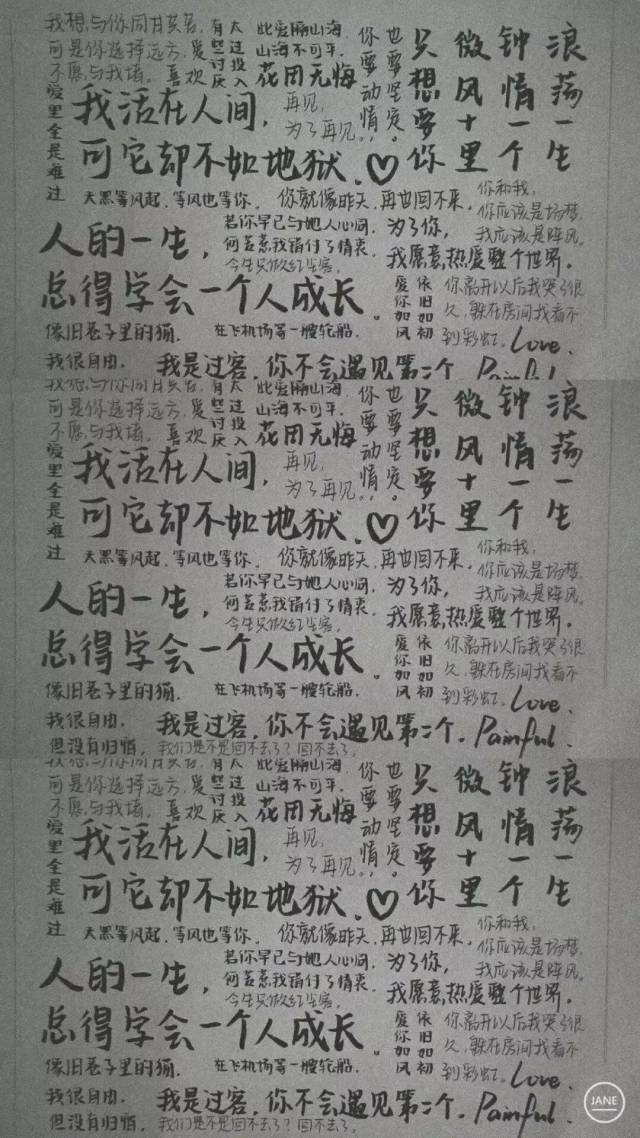 我想与你同甘共苦，
可是你选择远方，
不愿与我堵。喜欢
爱里全是难过
有些讨厌
太过投入
此爱隔山海，
山海不可平，
花开无悔
你要动情，
也要坚定。
只想要你
微风十里
钟情一个
浪荡一生
我活在人间，
再见，
为了再见，
可它却不如地狱。
天黑等风起，等风也等你。
你就像昨天，再也回不来。
你和我，
你应该是场梦，
我应该是阵风。
人的一生，
若你早已与她人心同，
何苦惹我错付了情衷，
为了你，
我愿意热爱整个世界。
总得学会一个人成长。
爱你如风
依旧如初
你离开以后我哭了很
久，躲在房间找看不
到彩虹。
Love、
像旧巷子里的猫，
在飞机场等一艘轮船。
我很自由，
我是过客，你不会遇见第二个。
Painful
我想与你同甘共苦，
可是你选择远方，
不愿与我堵。喜欢
爱里全是难过
有些讨厌
太过投入
此爱隔山海，
山海不可平，
花开无悔
你要动情，
也要坚定。
只想要你
微风十里
钟情一个
浪荡一生
我活在人间，
再见，
为了再见，
可它却不如地狱。
天黑等风起，等风也等你。
你就像昨天，再也回不来。
你和我，
你应该是场梦，
我应该是阵风。
人的一生，
若你早已与她人心同，
何苦惹我错付了情衷，
为了你，
我愿意热爱整个世界。
总得学会一个人成长。
爱你如风
依旧如初
你离开以后我哭了很
久，躲在房间找看不
到彩虹。
Love、
像旧巷子里的猫，
在飞机场等一艘轮船。
我很自由，
我是过客，你不会遇见第二个。
Painful、
但没有归宿，
我们是不是回不去了？回不去了。
可是你选择远方，
不愿与我堵。喜欢
爱里全是难过
有些讨厌
太过投入
此爱隔山海，
山海不可平，
花开无悔
你要动情，
也要坚定。
只想要你
微风十里
钟情一个
浪荡一生
我活在人间，
再见，
为了再见，
可它却不如地狱。
天黑等风起，等风也等你。
你就像昨天，再也回不来。
你和我，
你应该是场梦，
我应该是阵风。
人的一生，
若你早已与她人心同，
何苦惹我错付了情衷，
为了你，
我愿意热爱整个世界。
总得学会一个人成长。
爱你如风
依旧如初
你离开以后我哭了很
久，躲在房间找看不
到彩虹。
Love、
像旧巷子里的猫，
在飞机场等一艘轮船。
我很自由，
我是过客，你不会遇见第二个。
Painful、
但没有归宿，
我们是不是回不去了？回不去了。
JANE